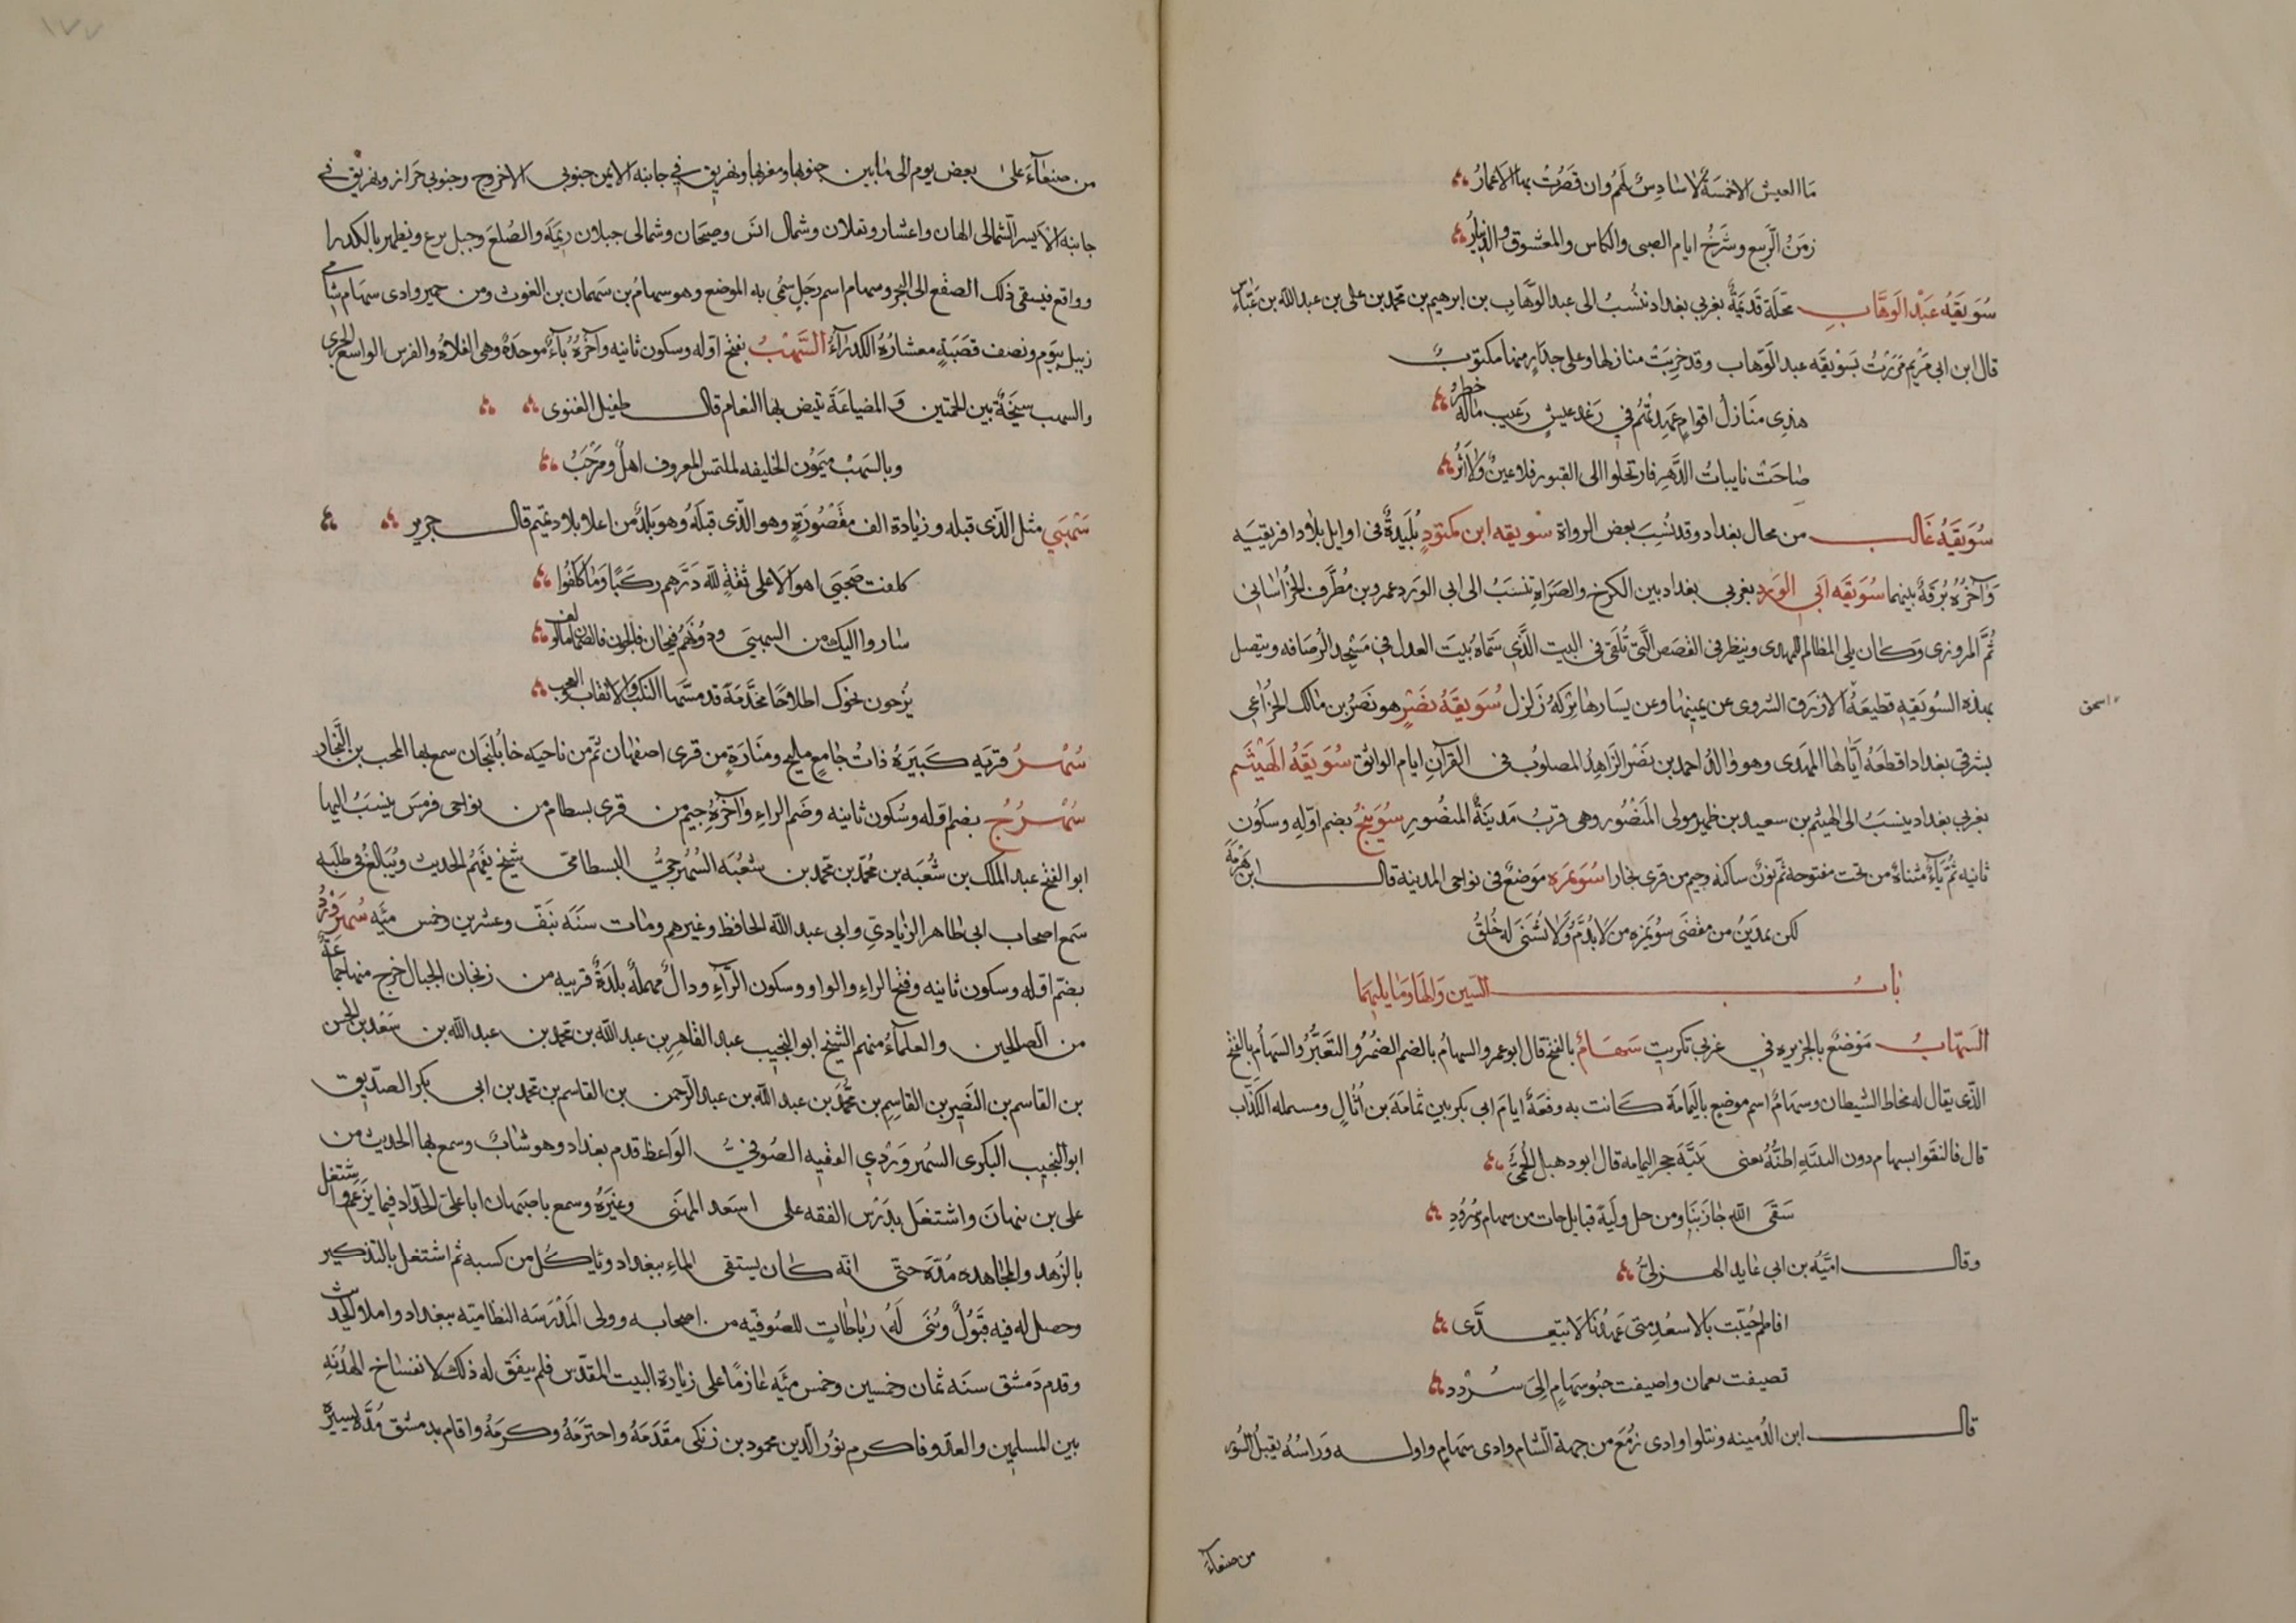 ما العيش الا خمسة لا سادس لهم وان قصرت بها الاعمار
زمن الربيع وشرخ ايام الصبى والكاس والمعشوق والدينار
سُوَيقَةُ عَبْد الوَهَّابِ محلة قديمة بغربي بغداد تنسب الى عبد الوهاب بن ابرهيم بن محمد بن على بن عبد الله بن عباس
قال ابن ابي مريم مررت بسويقة عبد الوهاب وقد خربت منازلها وعلى جدار منها مكتوب
هذى منازل اقوام عهدتهم في رغد عيش رغيب ماله خطر
صاحت نايبات الدهر فارتحلوا الى القبور فلا عين ولا اثر
سُوَيقَةُ غَالب من محال بغداد وقد نسب بعض الرواة سويقه ابن مكتود بليدة فى اوايل بلاد افريقيه
وآخره برقة بينهما سُوَيقَه ابي الوَرد بغربي بغداد بين الكرخ والصراة تنسب الى ابى الورد عمرو بن مطرف الخراسانى
ثم المروزى وكان يلى المظالم للمهدى وينظر فى القصص التى تلقى فى البيت الذي سماه بيت العدل في مسجد الرصافه ويتصل
بهذه السويقه قطيعة الازرق الشروى عن يمينها وعن يسارها بركة زلزل سُوَيقَةُ نَصْرٍ هو نصر بن مالك الخزاعى
اسحق
بشرقي بغداد اقطعه آياها المهدى وهو والد احمد بن نصر الزاهد المصلوب فى القرآن ايام الواثق سُوَيقَةُ الهَيْثَم
بغربي بغداد ينسب الى الهيثم بن سعيد بن ظهير مولى المنصور وهى قرب مدينة المنصور سُوَيَنج بضم اوله وسكون
ثانيه ثم ياء مثناة من تحت مفتوحة ثم نون ساكنه وجيم من قرى بخارا سُوَيمَره موضع فى نواحى المدينه قال ابن هرمة
لكن بمدين من مفضى سويمره من لا يذم ولا يشنى له خلق
باب السين والها وما يليهما
السَهَابُ موضع بالجزيره في غربي تكريت سَهَامُ بالفتح قال ابو عمرو السهام بالضم الضمر والتغير والسهام بالفتح
الذى يقال له مخاط الشيطان وسهام اسم موضع باليمامة كانت به وقعة ايام ابي بكر بين ثمامة بن اثال ومسيلمه الكذاب
قال فالتقوا بسهام دون الثنيه اظنه يعنى ثنية حجر اليمامه قال ابو دهبل الجمحي
سقى الله جازينا ومن حل وليه قبايل جات من سهام وسردد
وقال امية بن ابى عايد الهذلي
افاطم حييت بالاسعد متى عهدنا بك لا تبعدى
تصيفت نعمان واصيفت جنوب سهام الى سردد
قال ابن الدمينه ويتلوا وادى زمع من جهة الشام وادى سهام واوله وراسه نقيل السود
من صنعاء
١٧٧
من صنعآء على بعض يوم الى ما بين جنوبها ومغربها ويهريق في جانبه الايمن جنوبى الاخروج وجنوبي حراز ويهريق في
جانبه الايسر الشمالى الهان واعشار وبقلان وشمال انس وصيحان وشمالى جبلان ريمة والصلع وجبل برع ويظهر بالكدرا
وواقع فيسقى ذلك الصقع الى البحر وسهام اسم رجل سمى به الموضع وهو سهام بن سهمان بن الغوث ومن حمير وادى سهام شامي
زبيد بيوم ونصف قصبة معشاره الكدرآء السَّهْبُ بفتح اوله وسكون ثانيه وآخره بآء موحدة وهى الفلاة والفرس الواسع الجري
والسهب سبخة بين الحمتين و المضياعة تبيض بها النعام قال طفيل الغنوى
وبالسهب ميمون الخليقه لملتمس المعروف اهل ومرحب
سَهْبَى مثل الذى قبله وزيادة الف مقصورة وهو الذى قبله وهو بلد من اعلا بلاد تميم قال جرير
كلفت صحبي اهوالا على ثقة لله درهم ركبا وما كلفوا
ساروا اليك من السهبى ودونهم فيحان فالحزن فالصمان فالوكف
يزجون نحوك اطلاحا مخدمة قد مسها النكب والانقاب والعجف
سُهْرُ قريه كبيره ذات جامع مليح ومنارة من قرى اصفهان ثم من ناحيه خابلنجان سمع بها المحب بن النجار
سُهْرُج بضم اوله وسكون ثانيه وضم الراء وآخره جيم من قرى بسطام من نواحى قومس ينسب اليها
ابو الفتح عبد الملك بن شعبه بن محمد بن محمد بن شعبه السهرجي البسطامى شيخ يفهم الحديث ويبالغ فى طلبه
سمع اصحاب ابي طاهر الزيادي وابى عبد الله الحافظ وغيرهم ومات سنه نيف وعشرين وخمس مئه سُهرَوَردُ
بضم اوله وسكون ثانيه وفتح الراء والواو وسكون الراء ودال مهملة بلدة قريبه من زنجان الجبال خرج منها جماعة
من الصالحين والعلماء منهم الشيخ ابو النجيب عبد القاهر بن عبد الله بن محمد بن عبد الله بن سعد بن الحسن
بن القاسم بن النضير بن القاسم بن محمد بن عبد الله بن عبد الرحمن بن القاسم بن محمد بن ابى بكر الصديق
ابو النجيب البكرى السهروردي الفقيه الصوفي الواعظ قدم بغداد وهو شاب وسمع بها الحديث من
على بن نبهان واشتغل بدرس الفقه على اسعد المهنى وغيره وسمع باصبهان ابا على الحداد فيما يزعم واشتغل
بالزهد والمجاهده مدة حتى انه كان يستقى الماء ببغداد وياكل من كسبه ثم اشتغل بالتذكير
وحصل له فيه قبول وبنى له رباطات للصوفيه من اصحابه وولى المدرسه النظاميه ببغداد واملا الحديث
وقدم دمشق سنه ثمان وخمسين وخمس مئه عازما على زيارة البيت المقدس فلم يتفق له ذلك لانفساخ الهدنه
بين المسلمين والعدو فاكرم نور الدين محمود بن زنكى مقدمه واحترمه وكرمه واقام بدمشق مدة يسيره